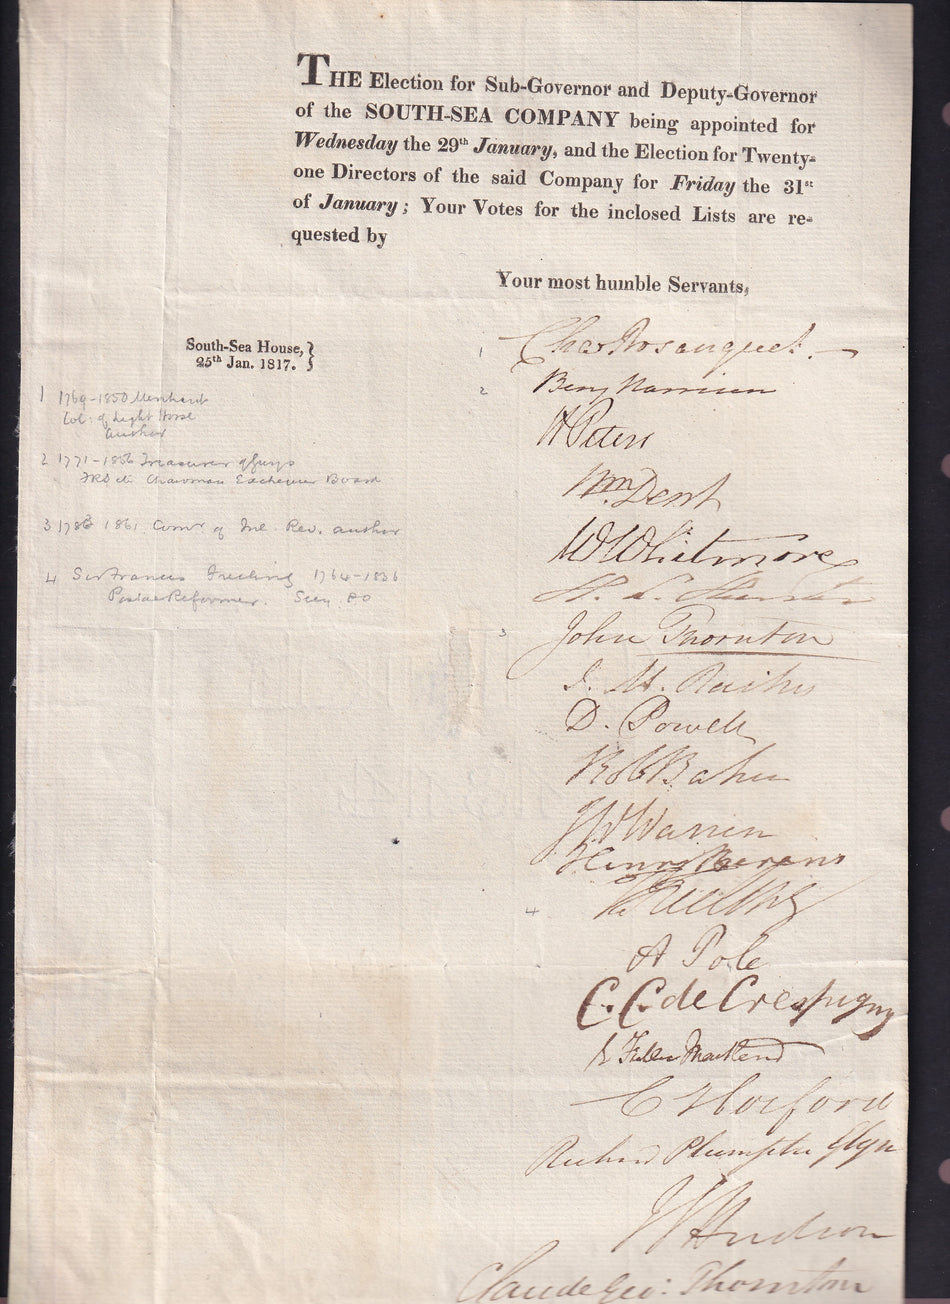 THE Election for Sub-Governor and Deputy-Governor
of the SOUTH-SEA COMPANY being appointed for
Wednesday the 29th January, and the Election for Twenty-
one Directors of the said Company for Friday the 31st
of January; Your Votes for the inclosed Lists are re-
quested by
Your most humble Servants,
South-Sea House,
25th Jan. 1817.
1 1769-1850 Merchant
Col: of Light Horse
author
2 1771-1856 Treasurer of Guys
FRS etc Chairman Exchequer Board
3 1783 1861. Comr of Inl. Rev. author
4 Sir Francis Freeling 1764-1836
Postal Reformer. Secy PO
1 Chas Bosanquet.
2 Benj Harrison
H Peters
Wm Dent
W W Whitmore
3 John Thornton
J. M. Raikes
D. Powell
Rob Baker
J W Warren
Henry Berens
4 F Freeling
A Pole
C. C. de Crespigny
Fuller Maitland
C Horford
Richard Plumptre Glyn
J Hudson
Claude Geo: Thornton